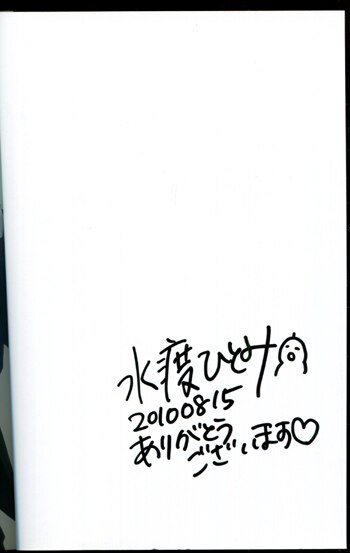 水度ひとみ
20100815
ありがとう
ございます♡